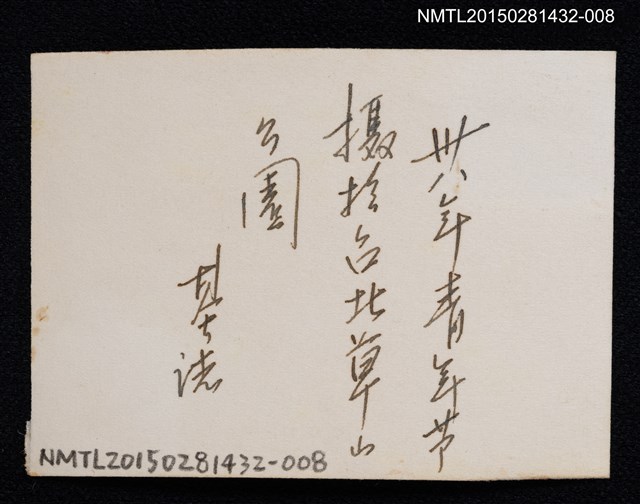 NMTL20150281432-008
卅八年青年节
摄於台北草山
公園
基誌
NMTL20150281432-008